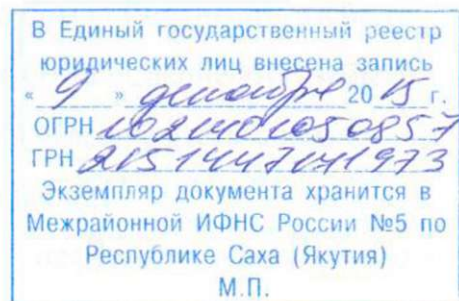 В Единый государственный реестр
юридических лиц внесена запись
« 9 » декабря 2015 г.
ОГРН 1021401050857
ГРН 2151447171973
Экземпляр документа хранится в
Межрайонной ИФНС России №5 по
Республике Саха (Якутия)
М.П.